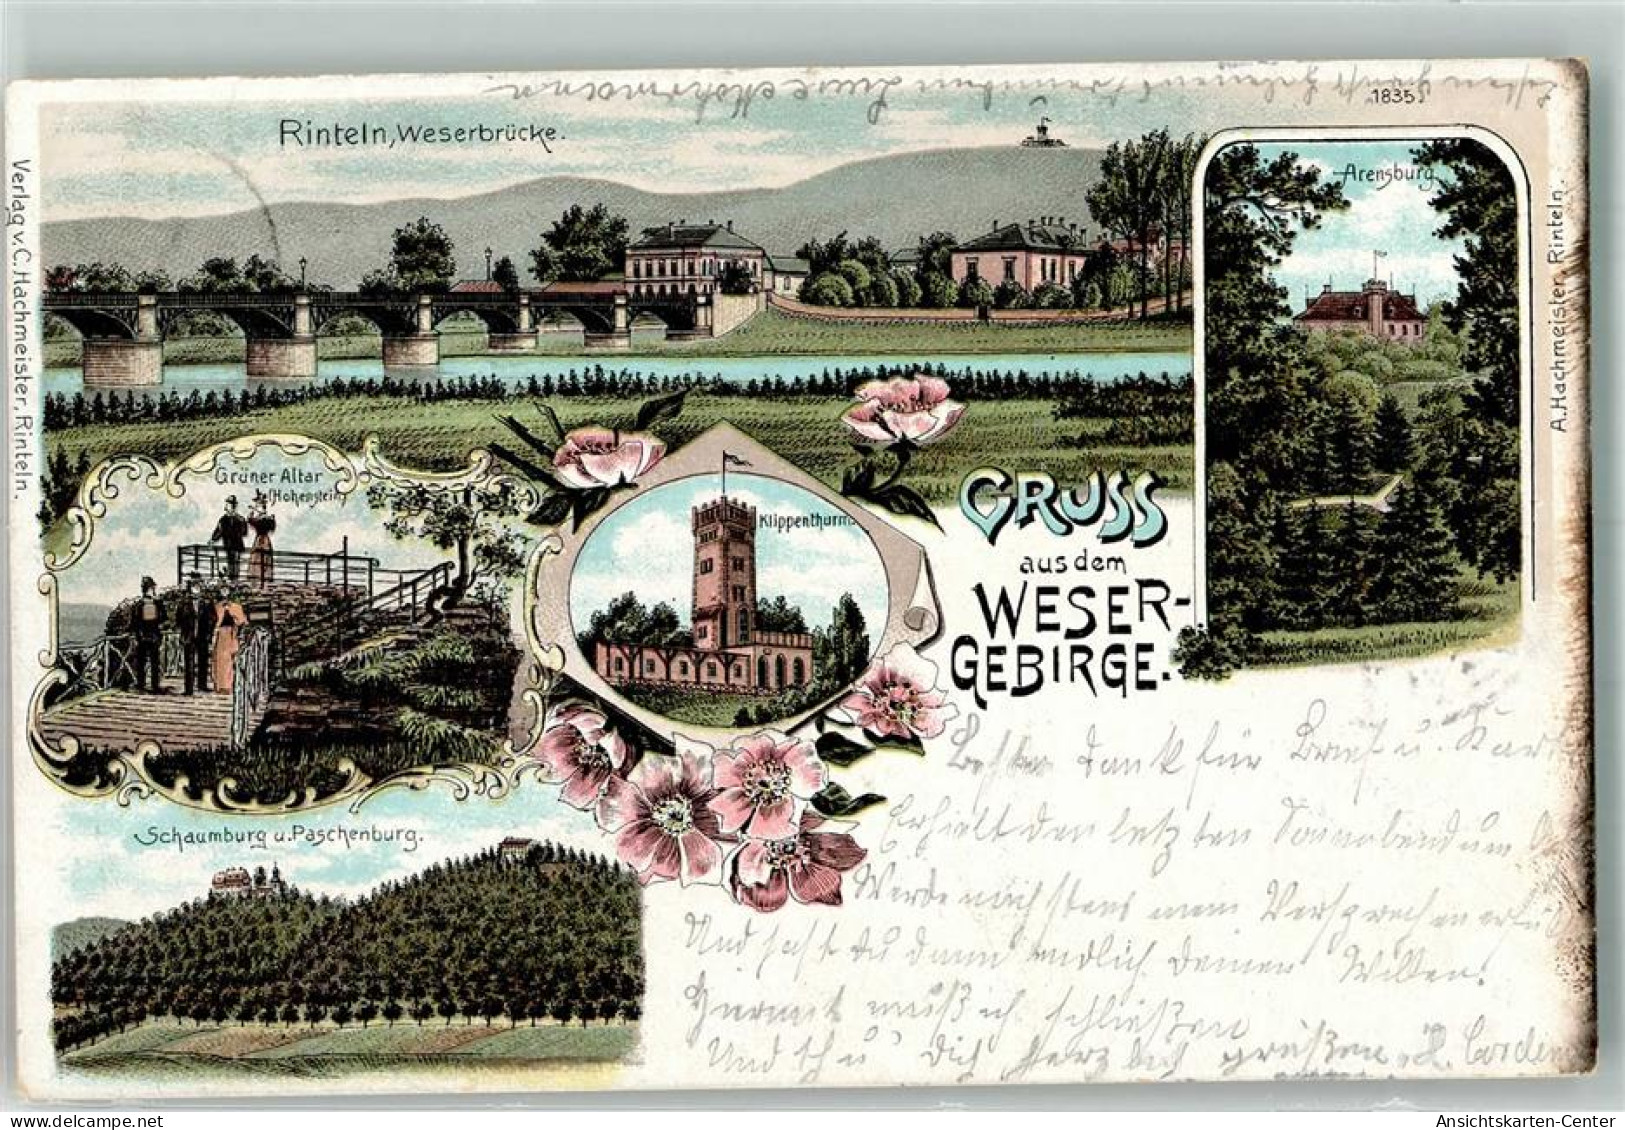 1835
Rinteln, Weserbrücke.
Arensburg
Verlag v. C. Hachmeister, Rinteln.
A. Hachmeister, Rinteln.
Grüner Altar
(Hohenstein)
Klippenthurm.
GRUSS
aus dem
WESER-
GEBIRGE.
Schaumburg u. Paschenburg.
Besten Dank für Brief u.
Erhielt den letzten Sonnabend um
Werde nächstens mein Versprechen
Und hast du dann endlich Deinen Willen.
Hiermit muß ich schließen
Und thu' Dich herzlich grüßen
Ansichtskarten-Center